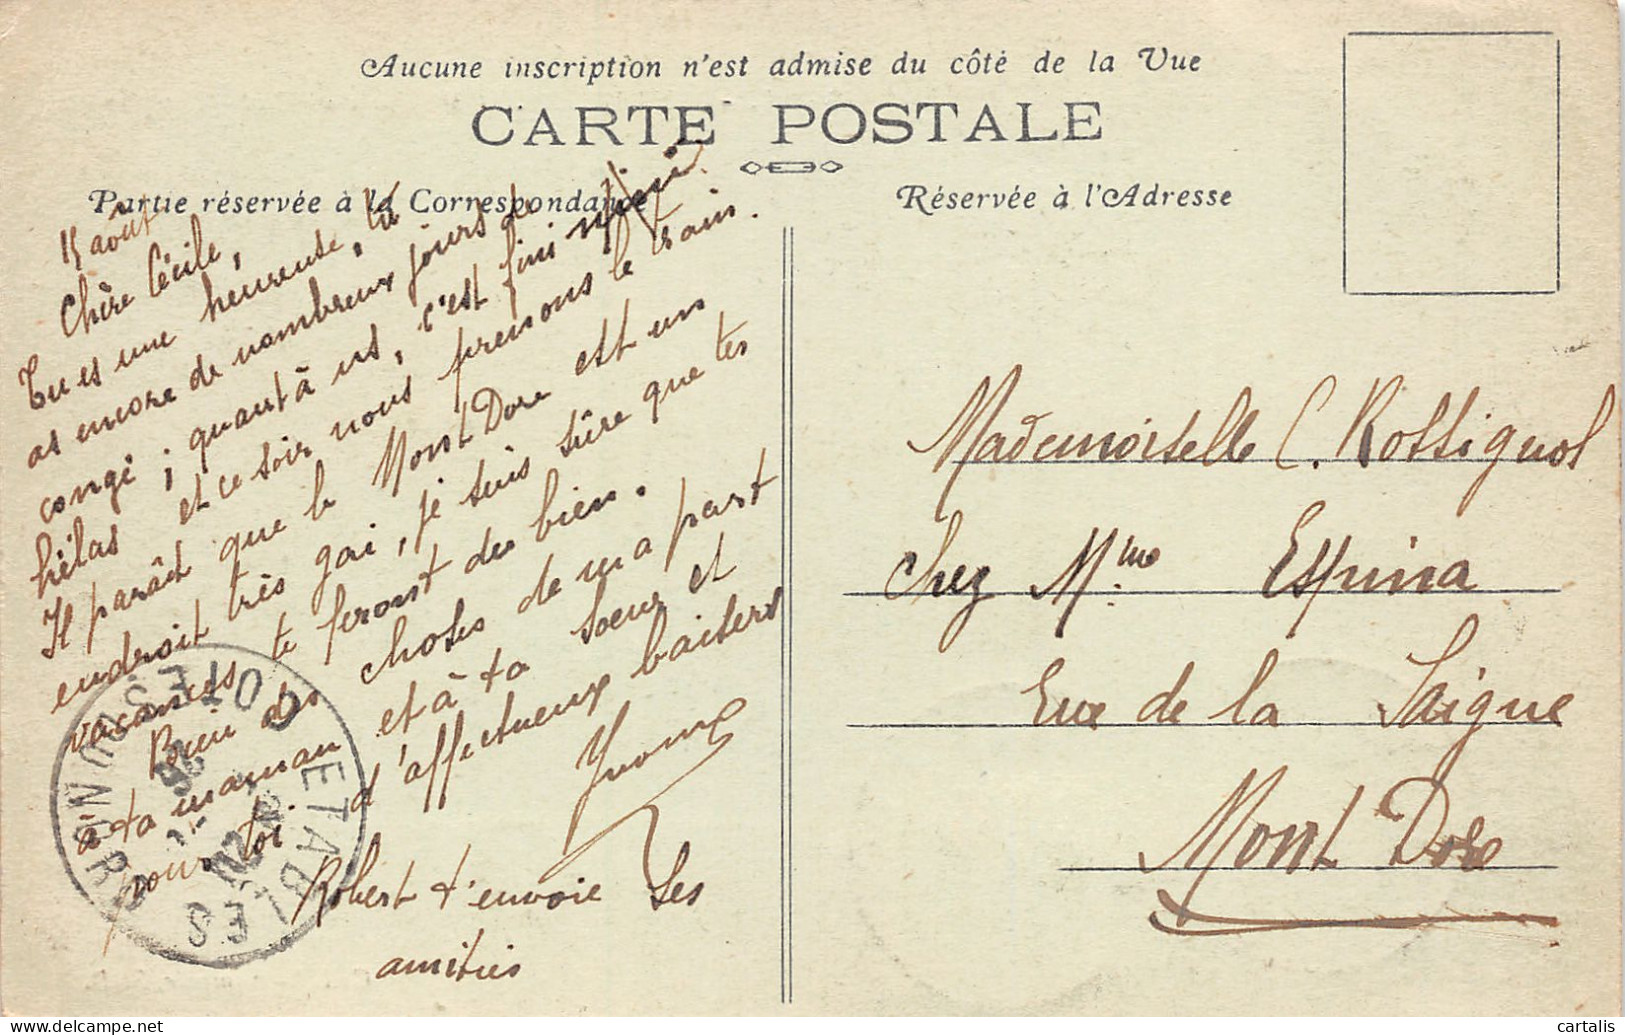 Aucune inscription n'est admise du côté de la Vue
CARTE POSTALE
Partie réservée à la Correspondance
Réservée à l'Adresse
15 août
Chère Cécile,
Tu es une heureuse, tu
as encore de nombreux jours de
congé ; quant à ns, c'est fini
hélas et ce soir nous prenons le train.
Il paraît que le Mont Dore est un
endroit très gai, je suis sûre que tes
vacances te feront du bien.
Bien des choses de ma part
à ta maman et à ta soeur et
pour toi d'affectueux baisers
Yvonne
Robert t'envoie ses
amitiés
Mademoiselle C. Rossignol
Chez Mme Espina
Rue de la Saigne
Mont Dore
ETABLES
COTES DU NORD
cartalis
www.delcampe.net